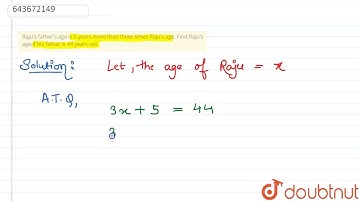 643672149
Raju's father's age is 5 years more than three times Raju's age. Find Raju's
age, if his father is 44 years old.
Solution: Let, the age of Raju = x
A.T.Q,
3x + 5 = 44
3
doubtnut